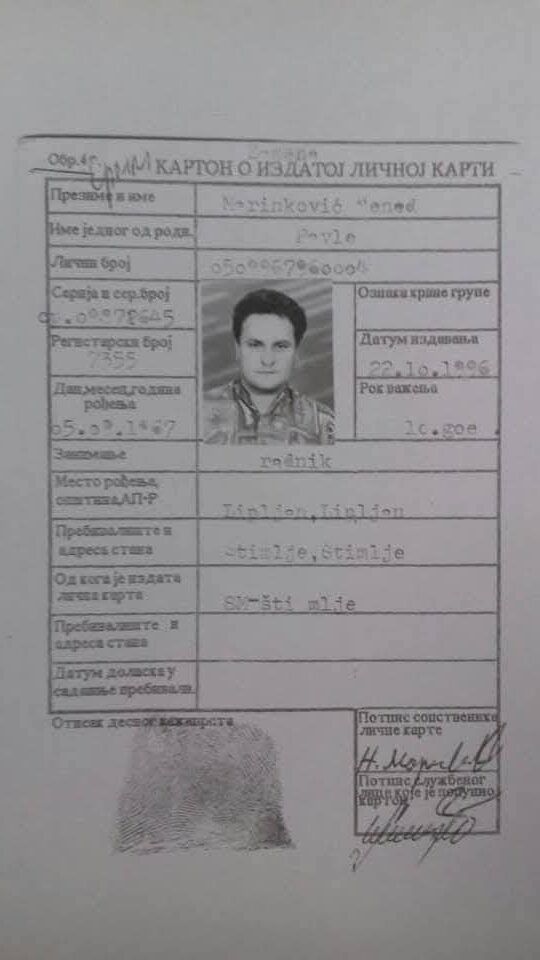 Обр.4
КАРТОН О ИЗДАТОЈ ЛИЧНОЈ КАРТИ
Презиме и име
Marinković Nenad
Име једног од роди.
Pavle
Лични број
Серија и сер.број
09378645
Регистарски број
7355
Дан,месец,година
рођења
05.09.1967
Ознака крвне групе
Датум издавања
22.10.1996
Рок важења
10.goe .
Занимање
radnik
Место рођења,
општина,АП-Р
Lipljan,Lipljan
Пребивалиште и
адреса стана
Štimlje,Štimlje
Од кога је издата
лична карта
SM-šti mlje
Пребивалиште и
адреса стана
Датум доласка у
садање пребивали.
Отисак десног кажипрста
Потпис сопственика
личне карте
Потпис службеног
лице које је попунио
картон